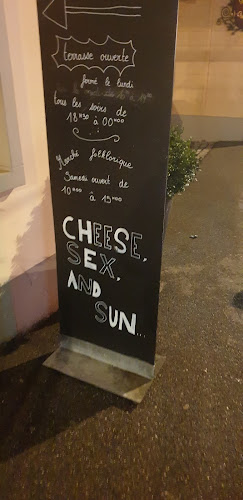 terrasse ouverte
fermé le lundi
tous les soirs de
18h30 à 00h00
Marché folklorique
Samedi ouvert de
10h00 à 15h00
CHEESE,
SEX,
AND
SUN...